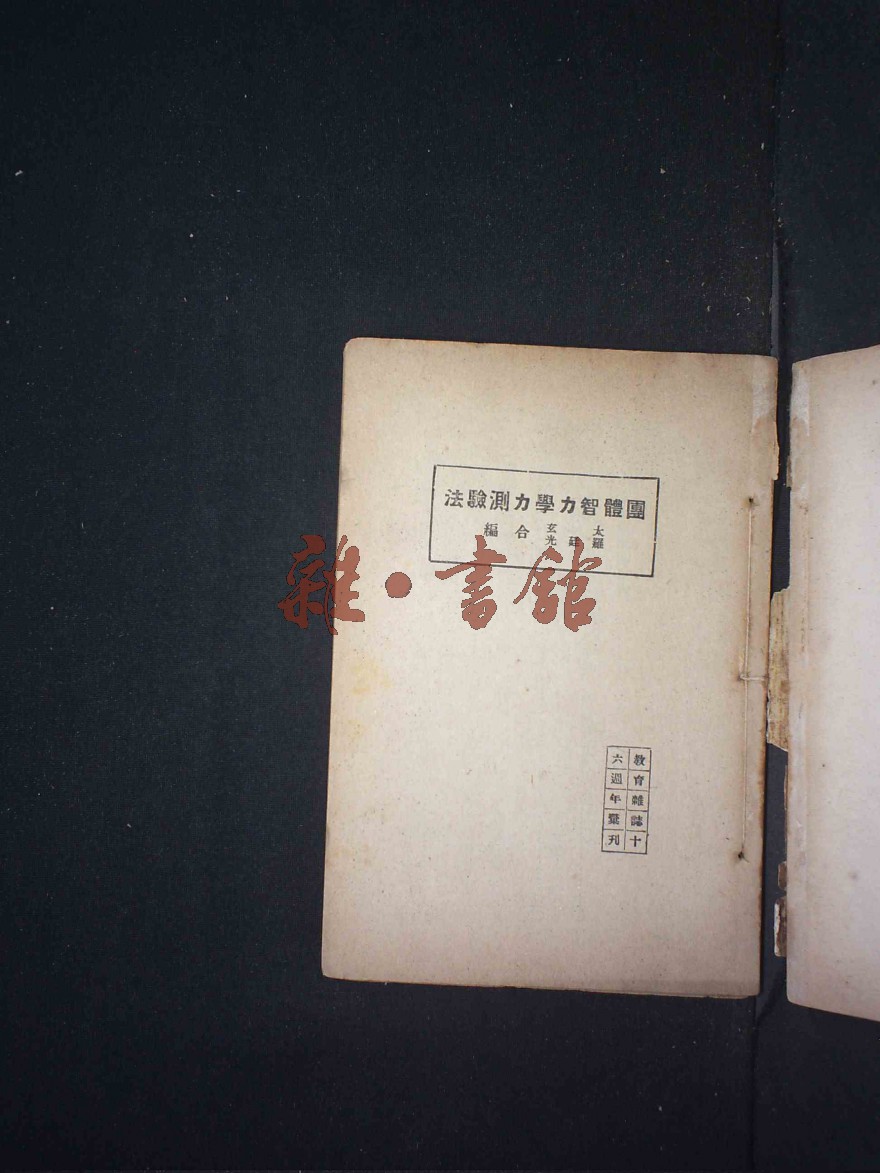 團體智力學力測驗法
太玄
羅光
合編
雜·書館
教育雜誌十
六週年彙刊